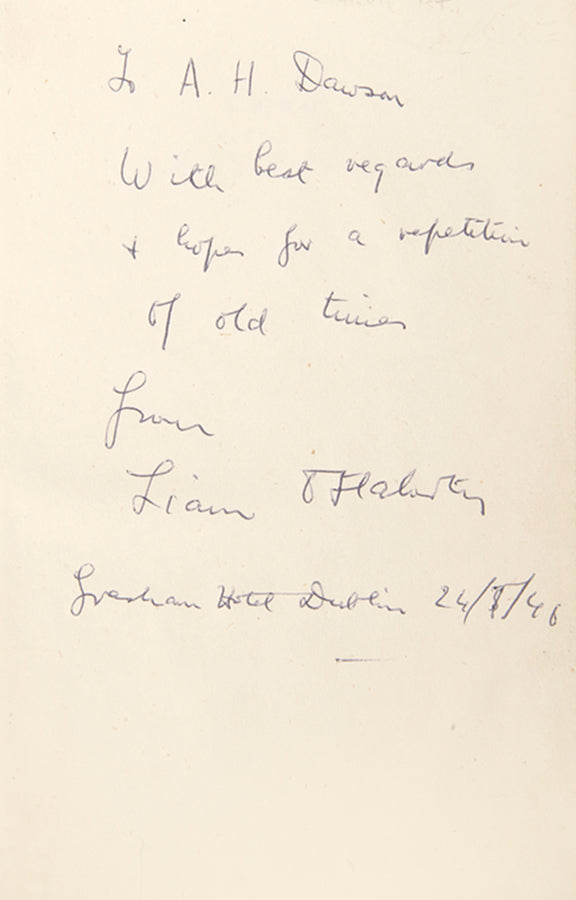 To A. H. Dawson
With best regards
+ hopes for a repetition
of old times
from
Liam O'Flaherty
Gresham Hotel Dublin